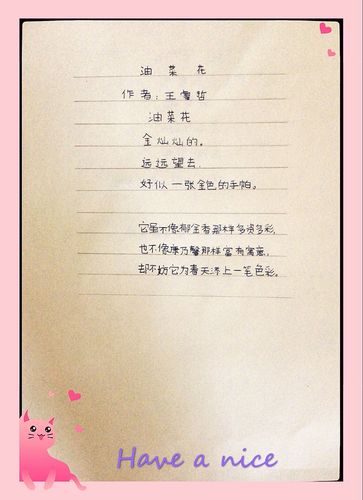 油 菜 花
作者:王睿哲
油菜花
金灿灿的。
远远望去,
好似一张金色的手帕。
它虽不像郁金香那样多姿多彩,
也不像康乃馨那样富有寓意,
却不妨它为春天添上一笔色彩。
Have a nice